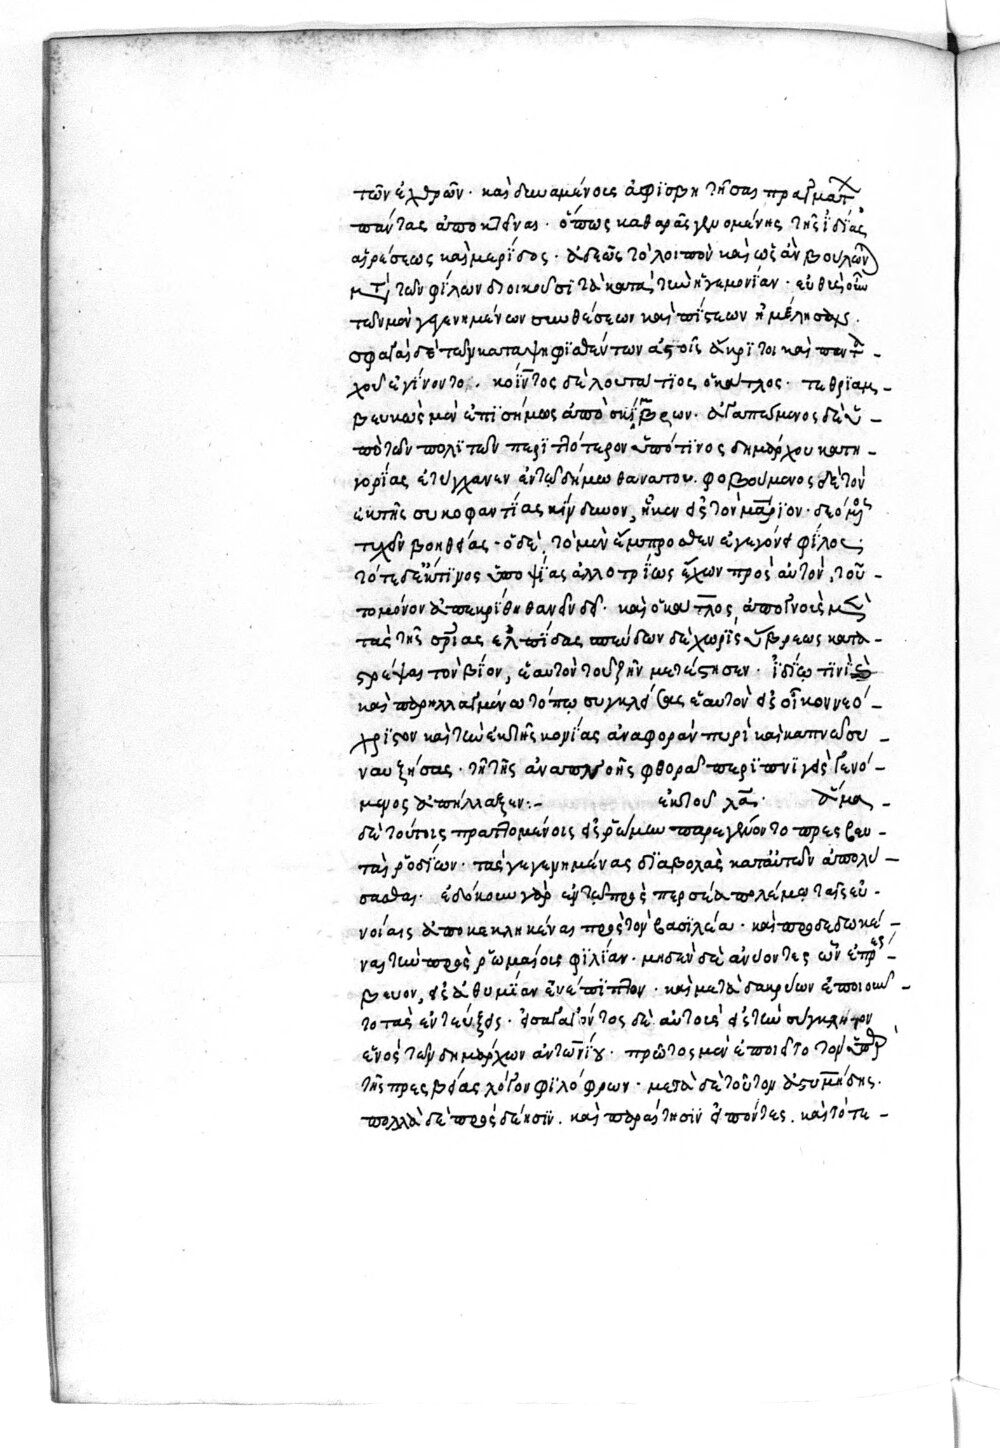 τῶν ἐχθρῶν· καὶ δυναμένοις ἀμφισβητῆσαι πραγμάτ
πάντας ἀποκτεῖναι· ὅπως καθαρᾶς γενομένης τῆς ἰδίας
αἱρέσεως καὶ μερίδος· ἀδεῶς τὸ λοιπὸν καὶ ὡς ἂν βουλῶν
μετὰ τῶν φίλων διοικοῦσι τὰ κατὰ τὴν ἡγεμονίαν· εὐθὺς οὖν
τῶν μὲν γεγενημένων συνθέσεων καὶ πίστεων ἠμέλησαν·
σφαγαὶ δὲ τῶν καταψηφισθέντων ἄκριτοι καὶ παντ –
χοῦ ἐγίνοντο· κόϊντος δὲ λουτάτιος ὁ κάτλος· τεθριαμ –
βευκὼς μὲν ἐπισήμως ἀπὸ κίμβρων· ἀγαπώμενος δὲ ὑ –
πὸ τῶν πολιτῶν περιττότερον ὑπό τινος δημάρχου κατη –
γορίας ἐτύγχανεν ἐν τῷ δήμῳ θανάτου· φοβούμενος δὲ τὸν
ἐκ τῆς συκοφαντίας κίνδυνον, ἧκεν εἰς τὸν μάριον· δεόμενος
τυχεῖν βοηθείας· ὁ δὲ, τὸ μὲν ἔμπροσθεν ἐγεγόνει φίλος·
τότε δὲ ἔκ τινος ὑποψίας ἀλλοτρίως ἔχων πρὸς αὐτὸν, τοῦ –
το μόνον ἀπεκρίθη θανεῖν δεῖ· καὶ ὁ κάτλος, ἀπογνοὺς μὲν
τὰς τῆς σωτηρίας ἐλπίδας σπεύδων δὲ χωρὶς ὕβρεως κατα –
στρέψαι τὸν βίον, ἑαυτὸν τοῦ ζῆν μετέστησεν· ἰδίῳ τινὶ
καὶ παρηλλαγμένῳ τόπῳ συγκλείσας ἑαυτὸν εἰς οἶκον νεό –
χριστον καὶ τὴν ἐκ τῆς κονίας ἀναφορὰν πυρὶ καὶ καπνῷ συ –
ναυξήσας· τῇ τῆς ἀναπνοῆς φθορᾷ περιπνιγὴς γενό –
μενος ἀπήλλαξεν:– ἐκ τοῦ λα· ἅμα –
δὲ τούτοις πραττομένοις εἰς ῥώμην παρεγένοντο πρεσβευ –
ταὶ ῥοδίων· τὰς γεγενημένας διαβολὰς κατ' αὐτῶν ἀπολύ –
σασθαι· ἐδόκουν γὰρ ἐν τῷ πρὸς περσέα πολέμῳ ταῖς εὐ –
νοίαις ἀποκεκλικέναι πρὸς τὸν βασιλέα· καὶ προδεδωκέ –
ναι τὴν πρὸς ῥωμαίους φιλίαν· μηδὲν δὲ ἀνύοντες ὧν ἐπρέσ –
βευον, εἰς ἀθυμίαν ἐνέπιπτον· καὶ μετὰ δακρύων ἐποιοῦν –
το τὰς ἐντεύξεις· εἰσαγαγόντος δὲ αὐτοὺς εἰς τὴν σύγκλητον
ἑνὸς τῶν δημάρχων ἀντωνίου· πρῶτος μὲν ἐποιεῖτο τὸν ὑπὲρ
τῆς πρεσβείας λόγον φιλόφρων· μετὰ δὲ τοῦτον ἀστυμήδης·
πολλὰ δὲ πρὸς δέησιν· καὶ παραίτησιν εἰπόντες· καὶ τὸ τε –